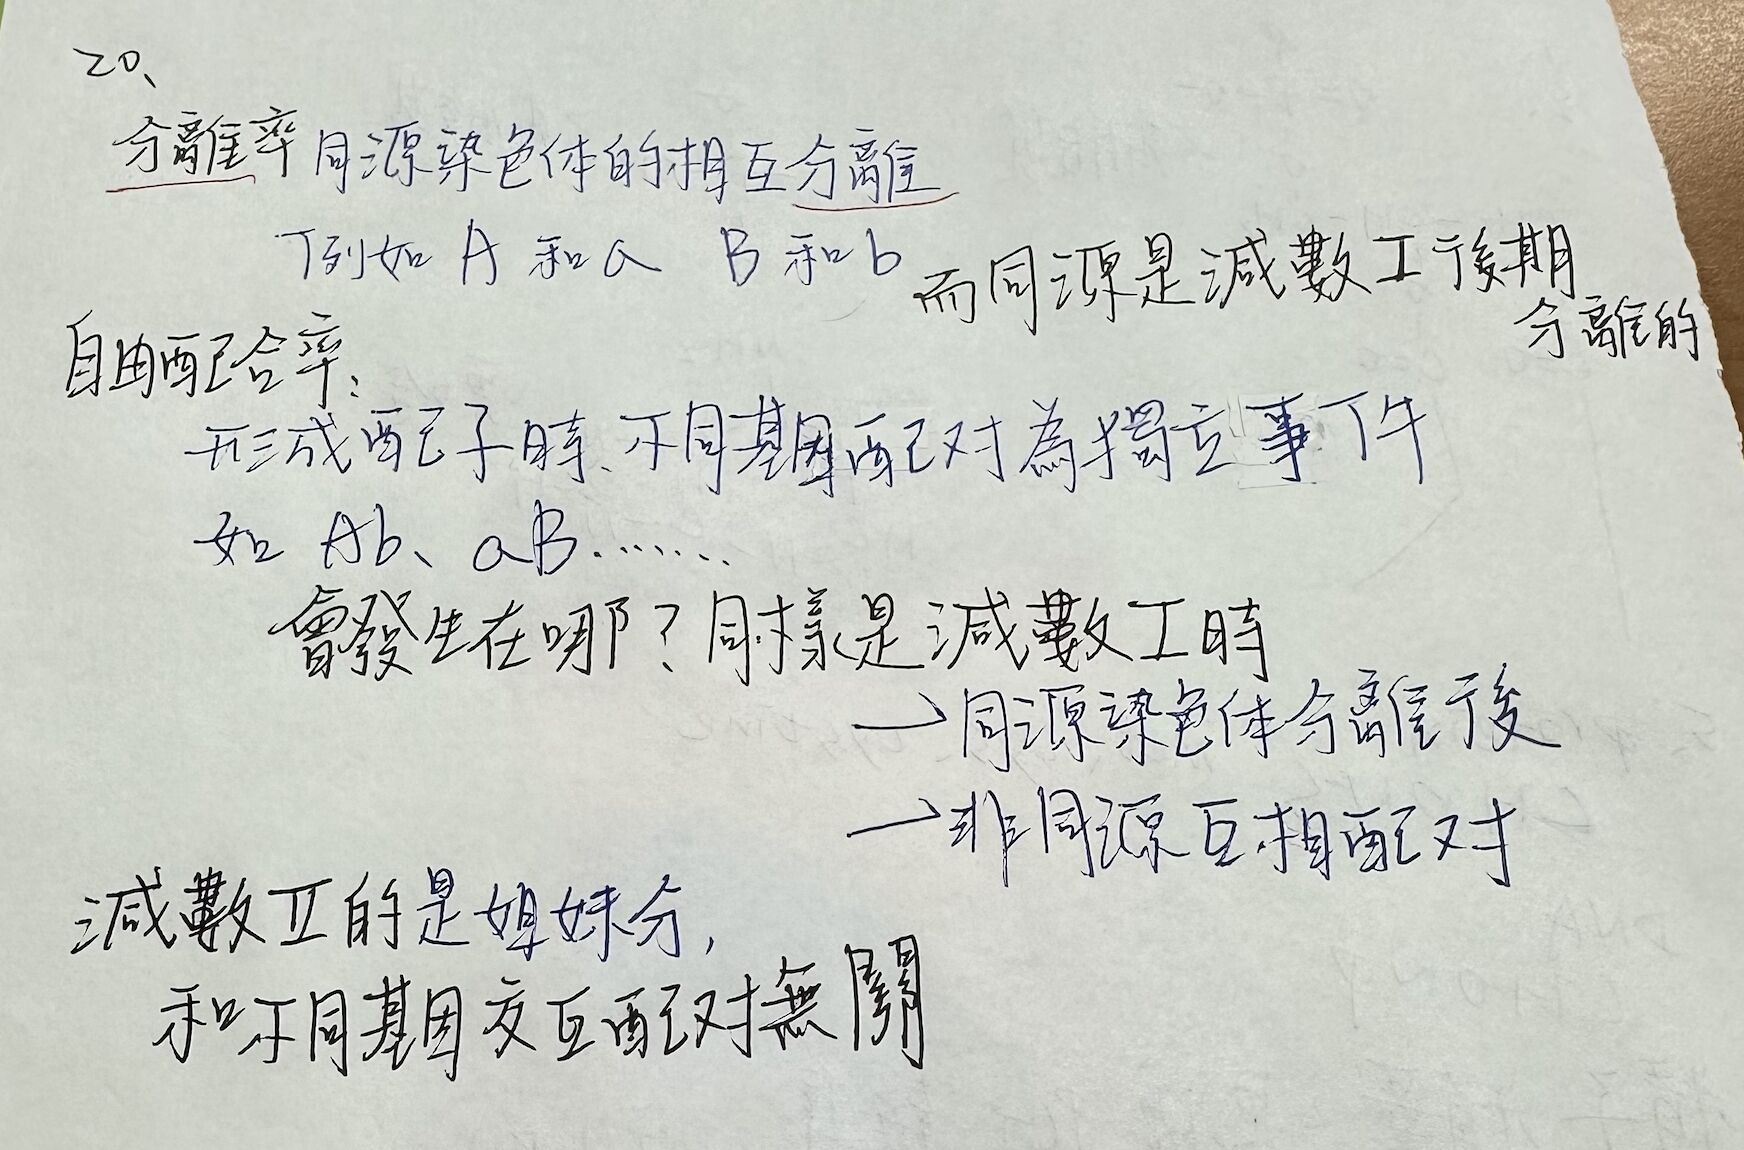 20、
分離率 同源染色体的相互分離
例如 A 和 a B 和 b
而同源是減數I後期
分離的
自由配合率：
形成配子時、不同基因配对為獨立事件
如 Ab、aB.......
會發生在哪？同樣是減數I時
→同源染色体分離後
→非同源互相配对
減數II的是姐妹分，
和不同基因交互配对無關